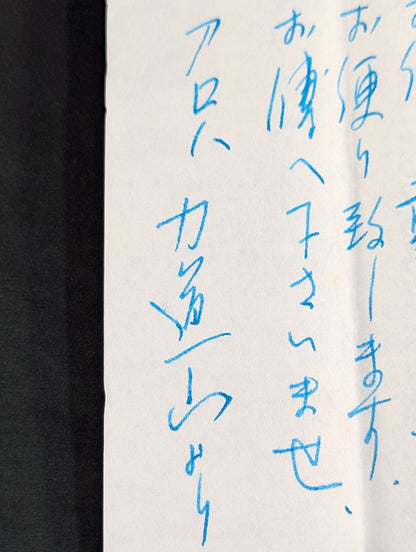 お便り致します.
お傳へ下さいませ.
アロハ 力道山より